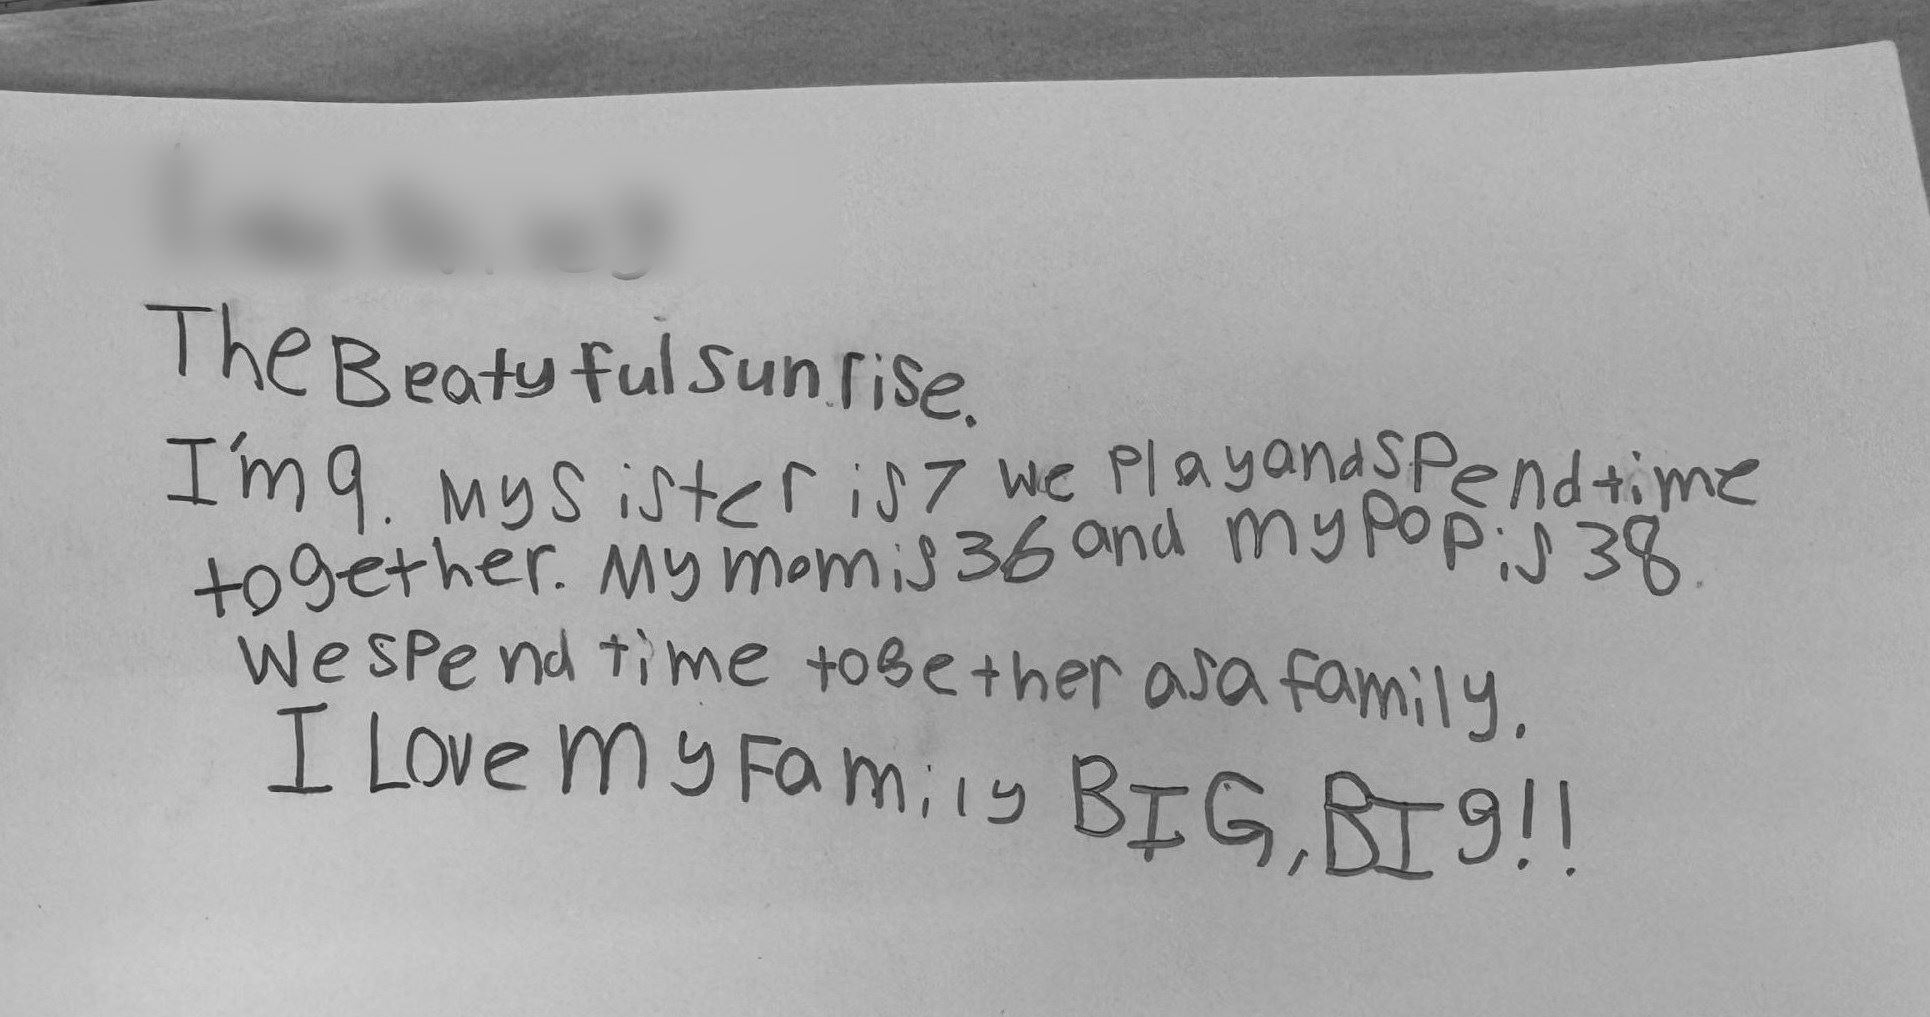 The Beatyful sunrise.
I'm 9. My sister is 7 we play and spend time
together. My mom is 36 and my pop is 38.
We spend time together as a family.
I Love my Family BIG, BIg!!